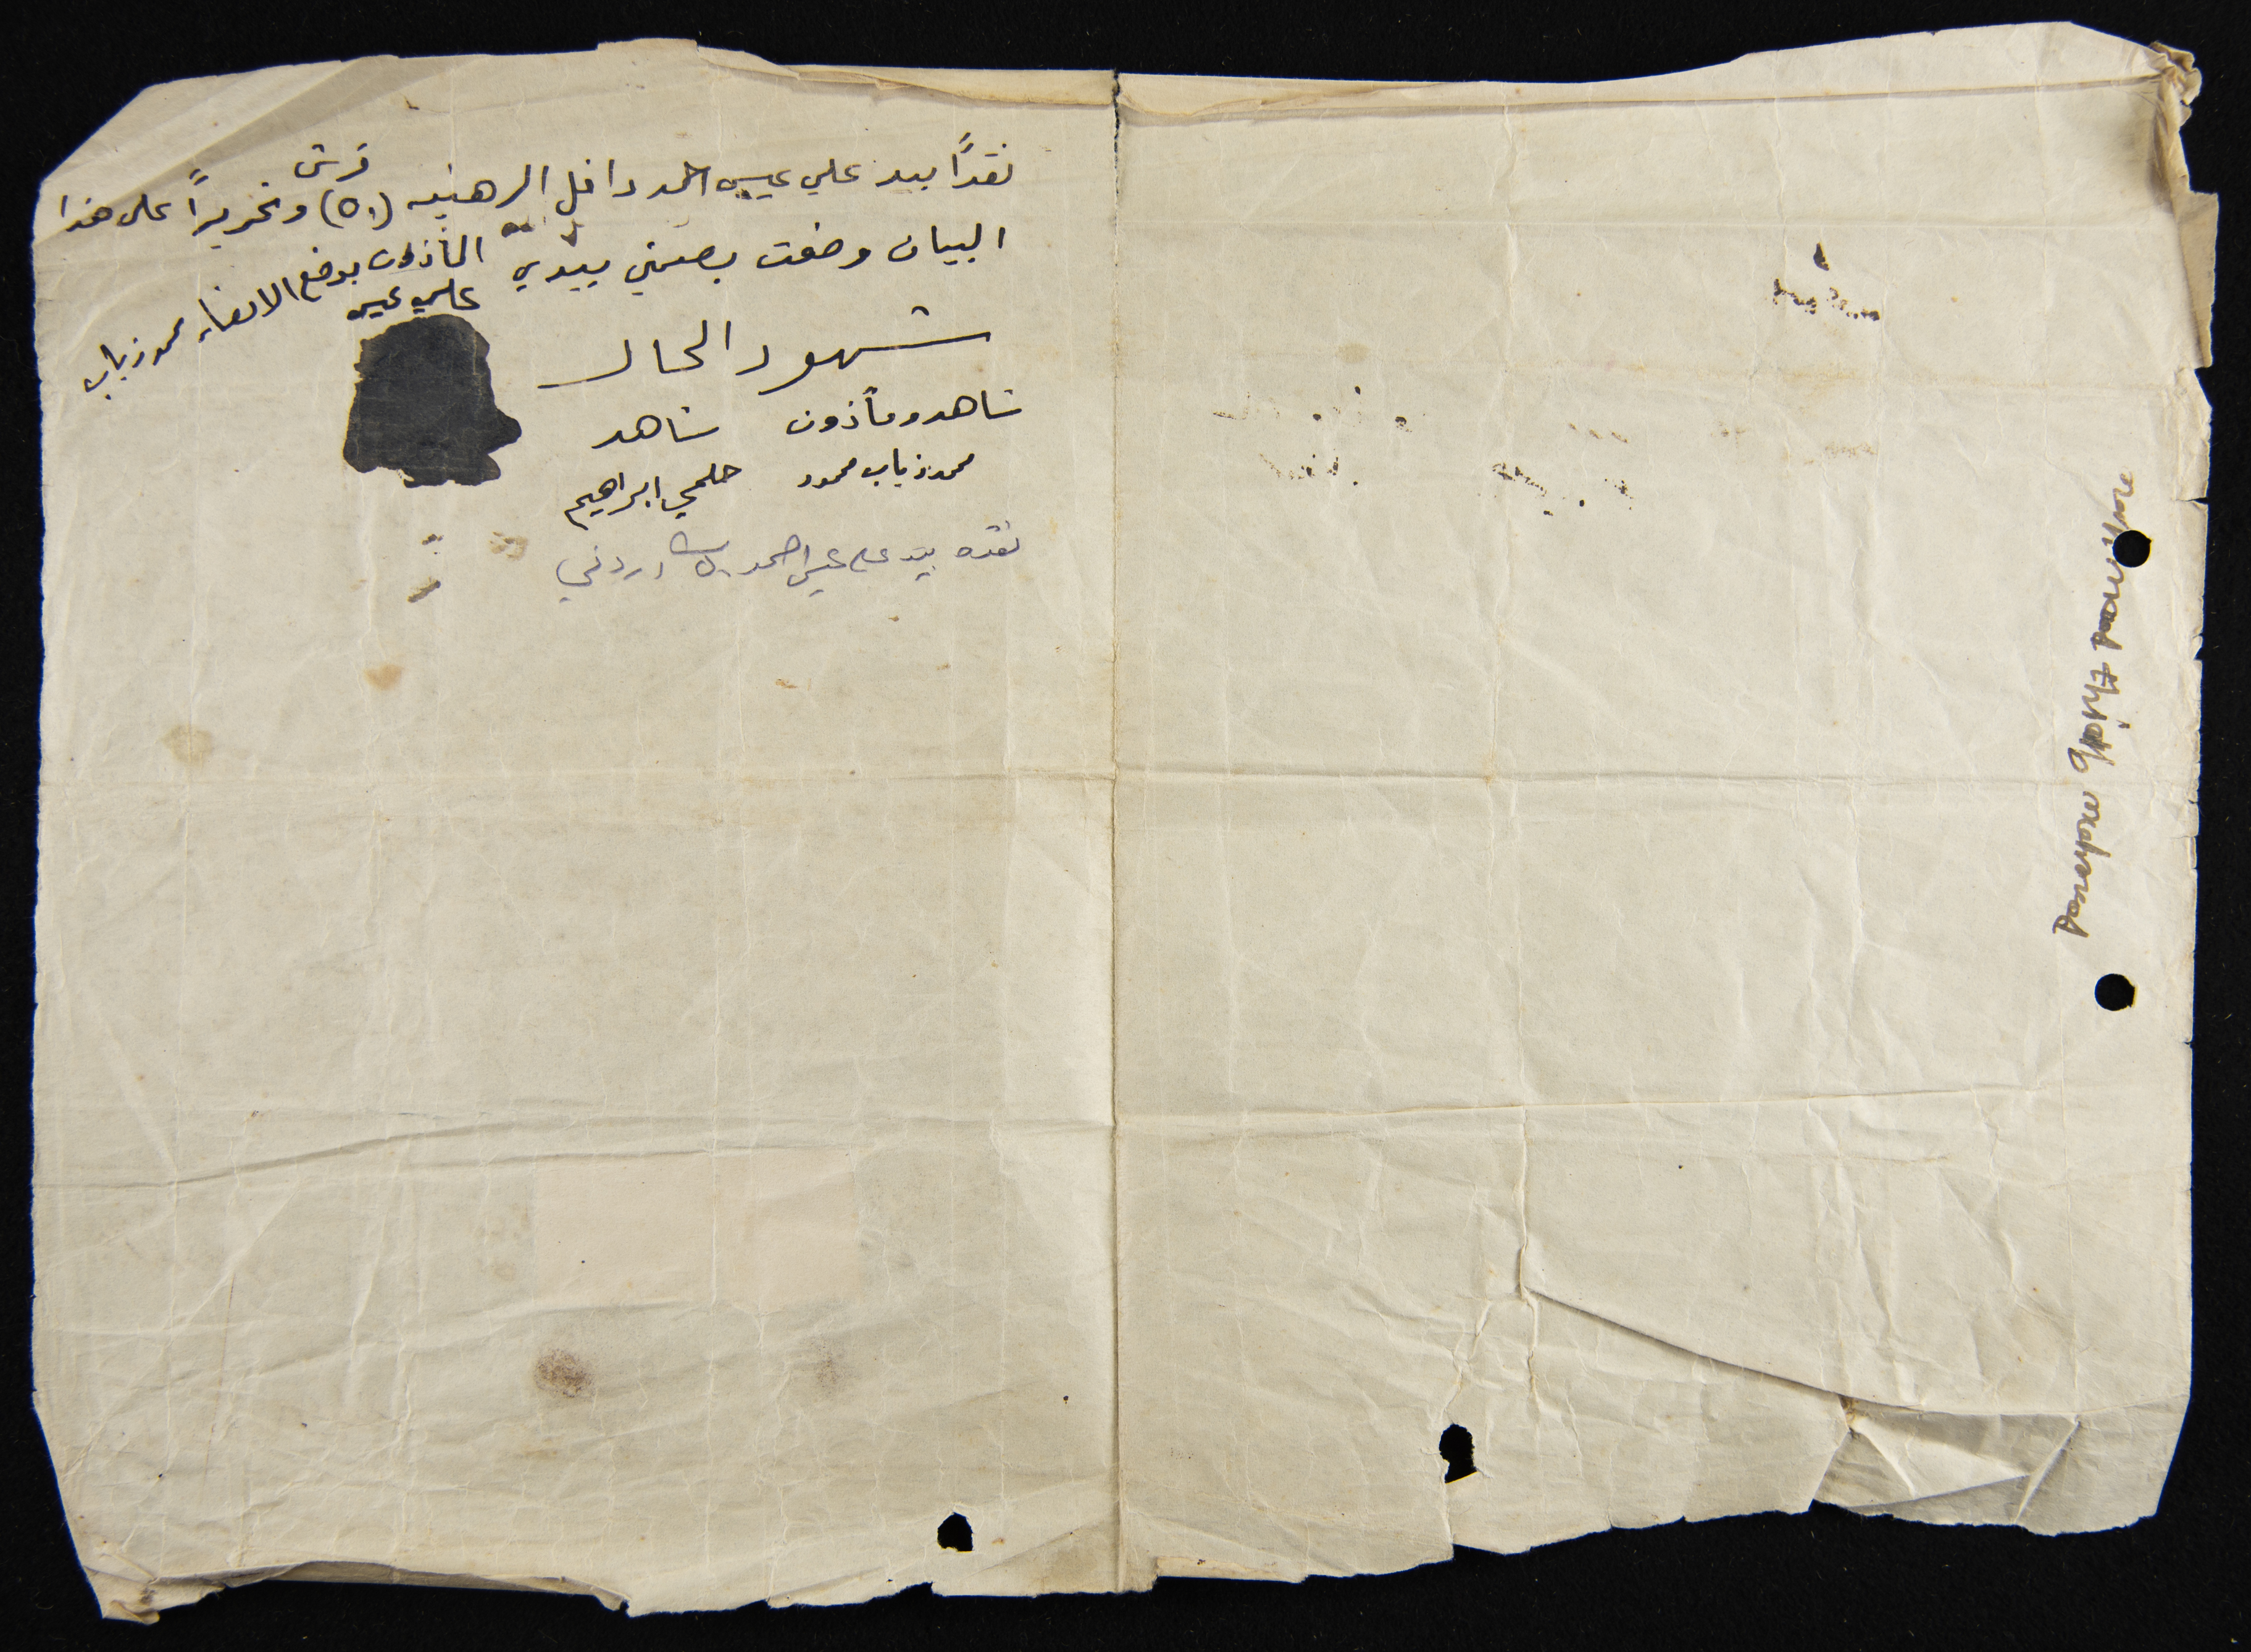 نقدًا بيد علي عيسى احمد دافل الرهنيه (٥١) قرش وتحريرًا على هذا
البيان وضعت بصمتي بيدي
المأذون بوضع الامضاء محمد ذياب
علي عيسى
شهود الحال
شاهد ومأذون شاهد
محمد ذياب محمود حلمي ابراهيم
نقده بيد علي عيسى احمد اردني
mohmod thiab